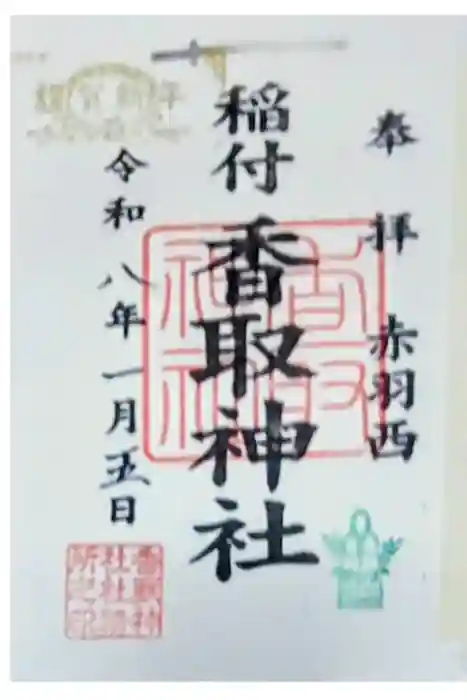 奉拝 赤羽西
稲付
香取神社
令和八年一月五日
謹賀新年
香取神社